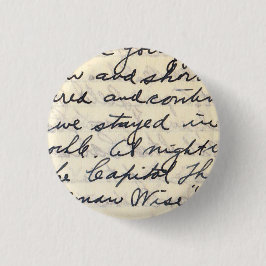 and shor
red and contin
we stayed in
ooth. At night
he Capitol Th
man Wise"